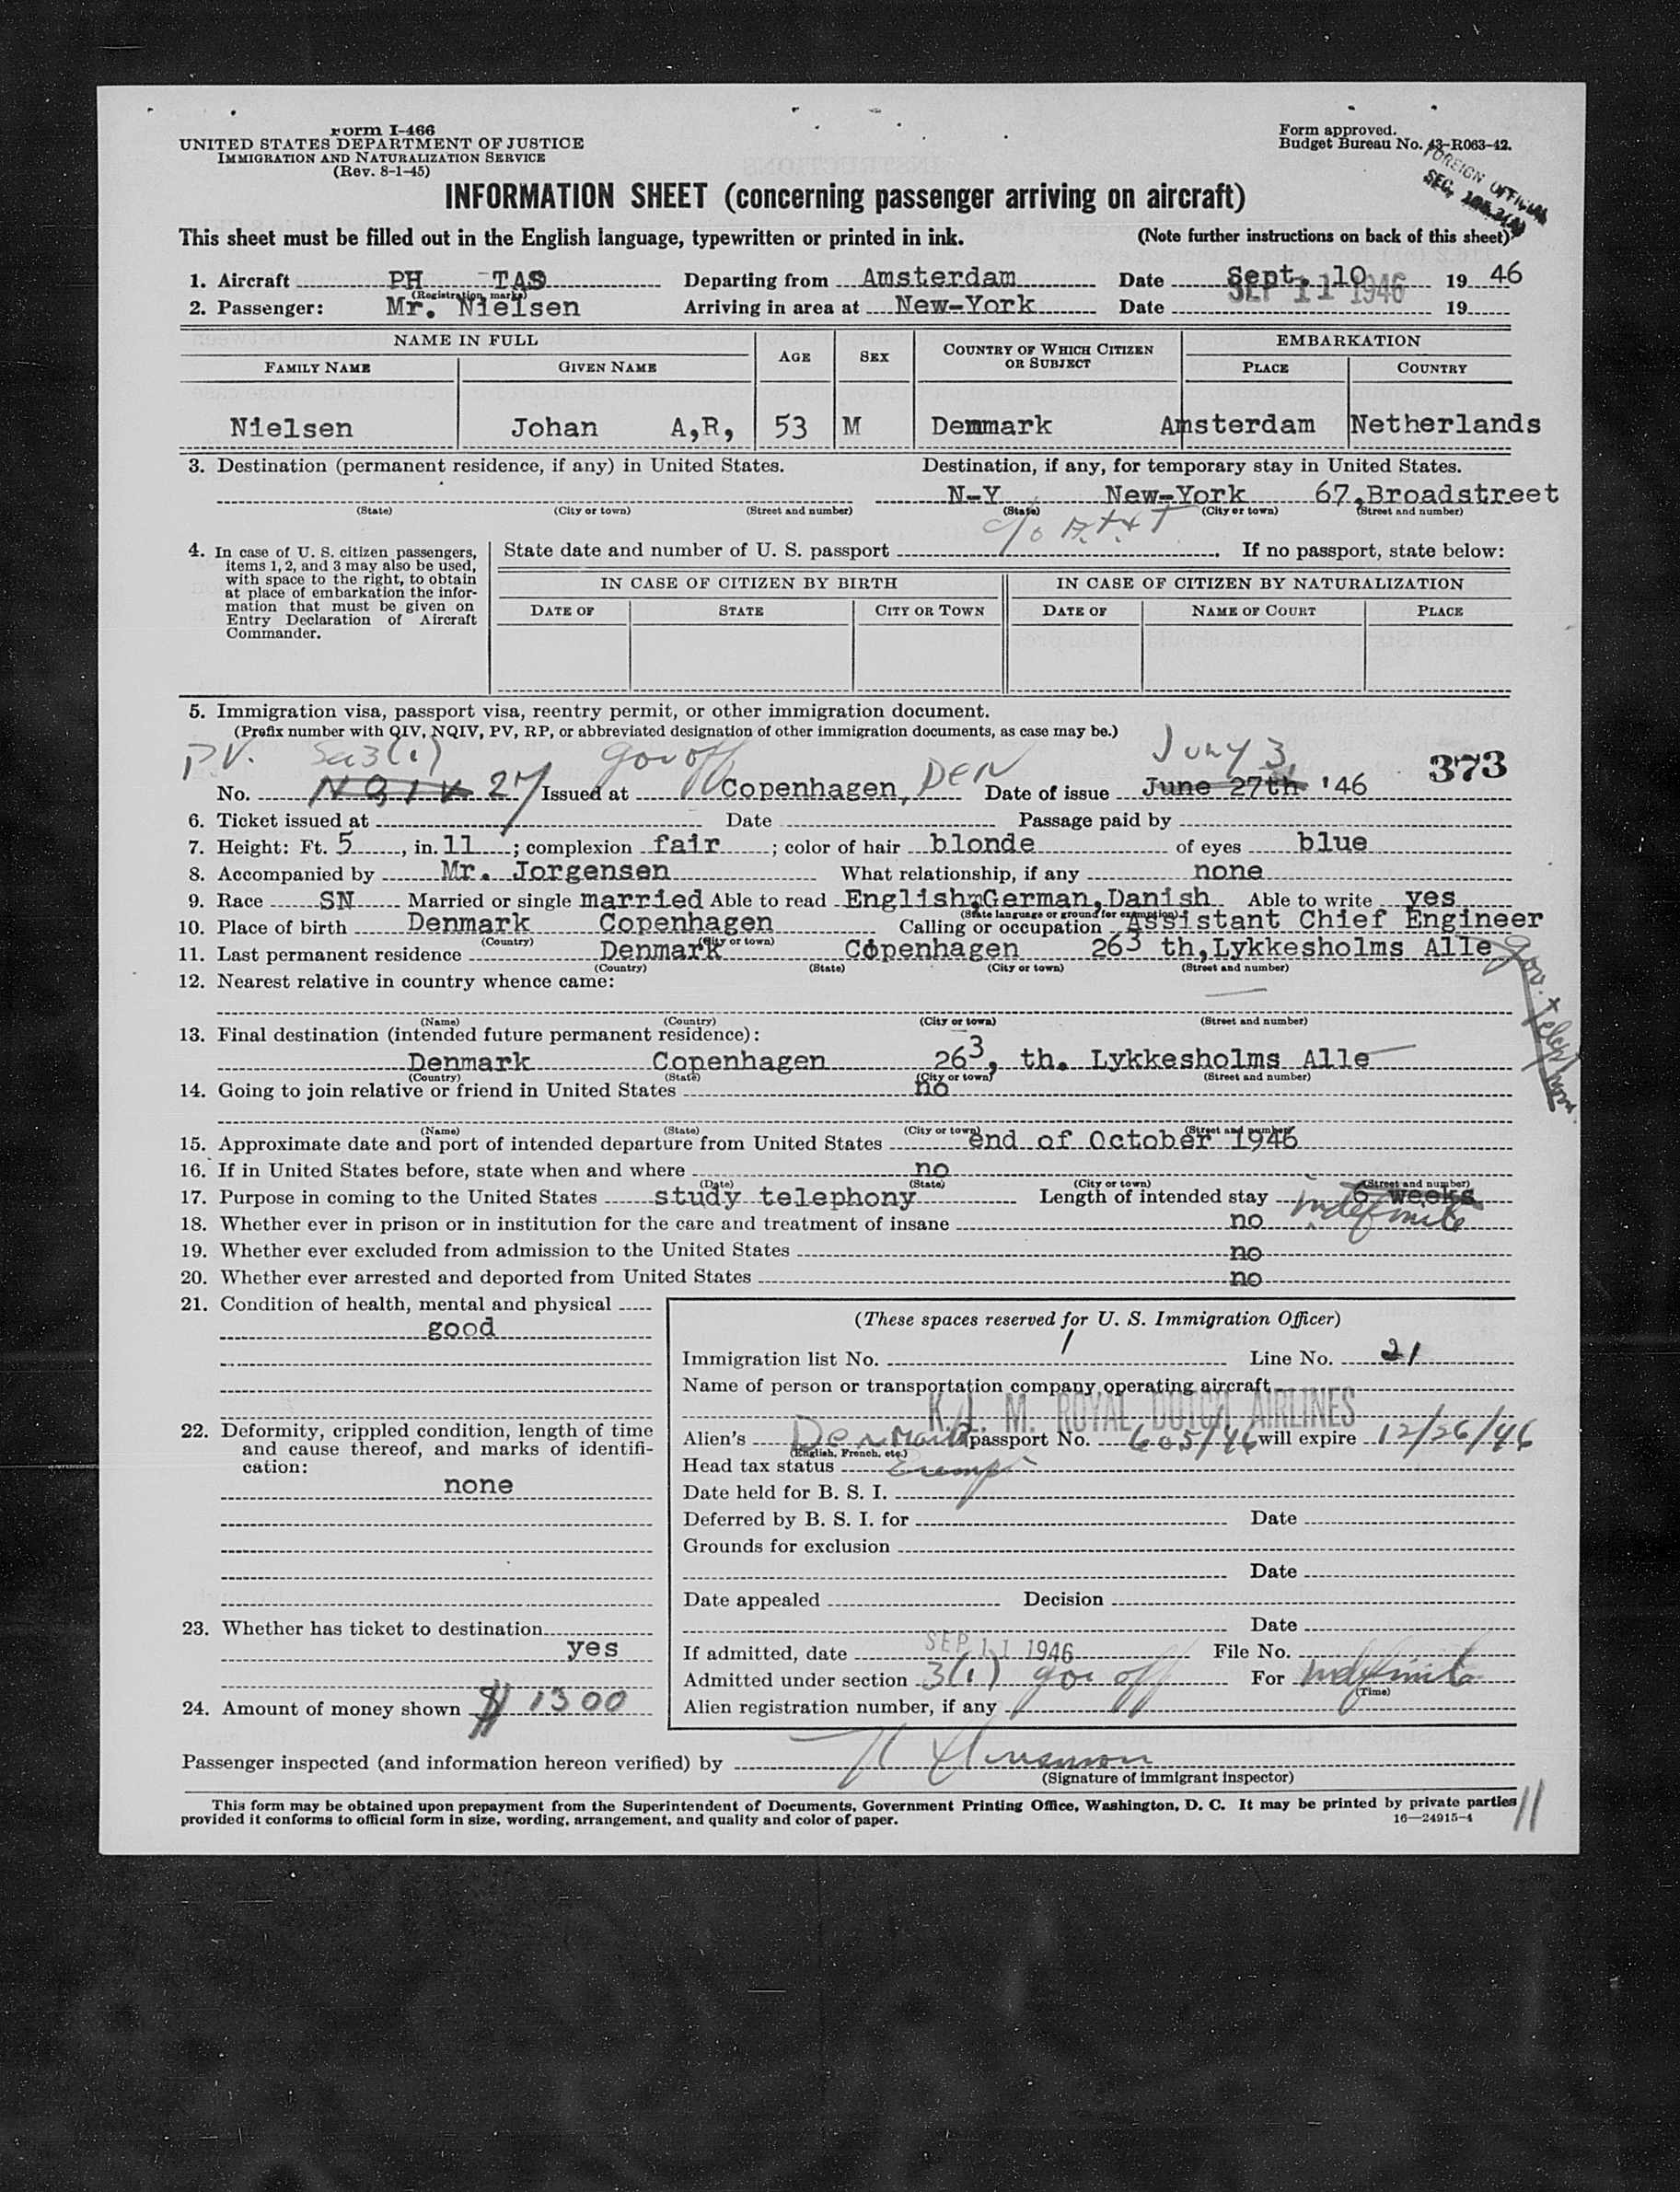 Form I-466
UNITED STATES DEPARTMENT OF JUSTICE
IMMIGRATION AND NATURALIZATION SERVICE
(Rev. 8-1-45)
Form approved.
Budget Bureau No. 43-R063-42.
FOREIGN OFFICIAL
SEC.
INFORMATION SHEET (concerning passenger arriving on aircraft)
This sheet must be filled out in the English language, typewritten or printed in ink. (Note further instructions on back of this sheet)
1. Aircraft PH TAS Departing from Amsterdam Date Sept. 10 1946
(Registration marks) SEP 11 1946
2. Passenger: Mr. Nielsen Arriving in area at New-York Date 19
NAME IN FULL AGE SEX COUNTRY OF WHICH CITIZEN OR SUBJECT EMBARKATION
FAMILY NAME GIVEN NAME PLACE COUNTRY
Nielsen Johan A,R, 53 M Denmark Amsterdam Netherlands
3. Destination (permanent residence, if any) in United States. Destination, if any, for temporary stay in United States.
N-Y New-York 67,Broadstreet
(State) (City or town) (Street and number) (State) (City or town) (Street and number)
c/o
4. In case of U. S. citizen passengers, items 1, 2, and 3 may also be used, with space to the right, to obtain at place of embarkation the information that must be given on Entry Declaration of Aircraft Commander.
State date and number of U. S. passport If no passport, state below:
IN CASE OF CITIZEN BY BIRTH IN CASE OF CITIZEN BY NATURALIZATION
DATE OF STATE CITY OR TOWN DATE OF NAME OF COURT PLACE
5. Immigration visa, passport visa, reentry permit, or other immigration document.
(Prefix number with QIV, NQIV, PV, RP, or abbreviated designation of other immigration documents, as case may be.)
P.V. Sec 3(1) gov off July 3, 373
No. NQIV 27 Issued at Copenhagen, DEN Date of issue June 27th '46
6. Ticket issued at Date Passage paid by
7. Height: Ft. 5, in. 11; complexion fair; color of hair blonde of eyes blue
8. Accompanied by Mr. Jorgensen What relationship, if any none
9. Race SN Married or single married Able to read English,German,Danish Able to write yes
(State language or ground for exemption)
10. Place of birth Denmark Copenhagen Calling or occupation Assistant Chief Engineer
(Country) (City or town)
11. Last permanent residence Denmark Copenhagen 263 th,Lykkesholms Alle
(Country) (State) (City or town) (Street and number)
gov.
12. Nearest relative in country whence came:
(Name) (Country) (City or town) (Street and number)
13. Final destination (intended future permanent residence):
Denmark Copenhagen 263, th. Lykkesholms Alle
(Country) (State) (City or town) (Street and number)
14. Going to join relative or friend in United States no
(Name) (State) (City or town) (Street and number)
15. Approximate date and port of intended departure from United States end of October 1946
16. If in United States before, state when and where no
(Date) (State) (City or town) (Street and number)
17. Purpose in coming to the United States study telephony Length of intended stay 6 weeks
indefinite
18. Whether ever in prison or in institution for the care and treatment of insane no
19. Whether ever excluded from admission to the United States no
20. Whether ever arrested and deported from United States no
21. Condition of health, mental and physical
good
22. Deformity, crippled condition, length of time and cause thereof, and marks of identification:
none
23. Whether has ticket to destination
yes
24. Amount of money shown $ 1300
(These spaces reserved for U. S. Immigration Officer)
Immigration list No. 1 Line No. 21
Name of person or transportation company operating aircraft
K. L. M. ROYAL DUTCH AIRLINES
Alien's Denmark passport No. 605/46 will expire 12/26/46
(English, French, etc.)
Head tax status Exempt
Date held for B. S. I.
Deferred by B. S. I. for Date
Grounds for exclusion
Date
Date appealed Decision
Date
If admitted, date SEP 11 1946 File No.
Admitted under section 3(1) gov off For Indefinite
(Time)
Alien registration number, if any
Passenger inspected (and information hereon verified) by
(Signature of immigrant inspector)
This form may be obtained upon prepayment from the Superintendent of Documents, Government Printing Office, Washington, D. C. It may be printed by private parties
provided it conforms to official form in size, wording, arrangement, and quality and color of paper. 16—24915-4
11